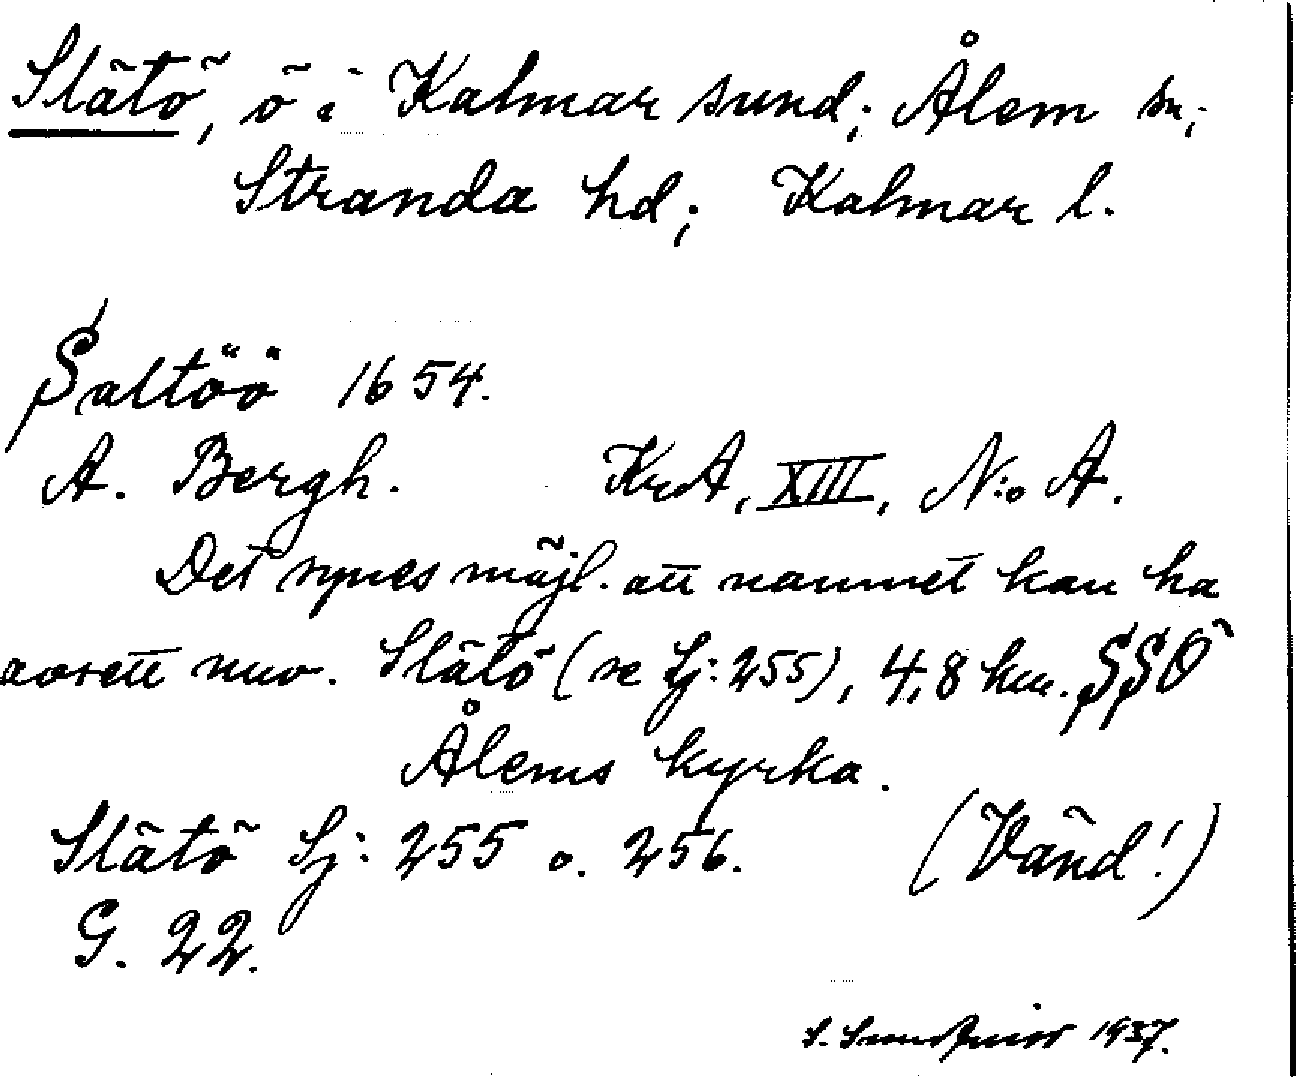 Slätö, ö i Kalmar sund; Ålem sn;
Stranda hd; Kalmar l.
Saltöö 1654.
A. Bergh. KrA, XIII, N:o A.
Det synes möjl. att namnet kan ha
avsett nuv. Slätö (se Sj: 255), 4,8 km. SSÖ
Ålems kyrka.
Slätö Sj: 255 o. 256. (Vänd!)
G. 22.
S. 1937.